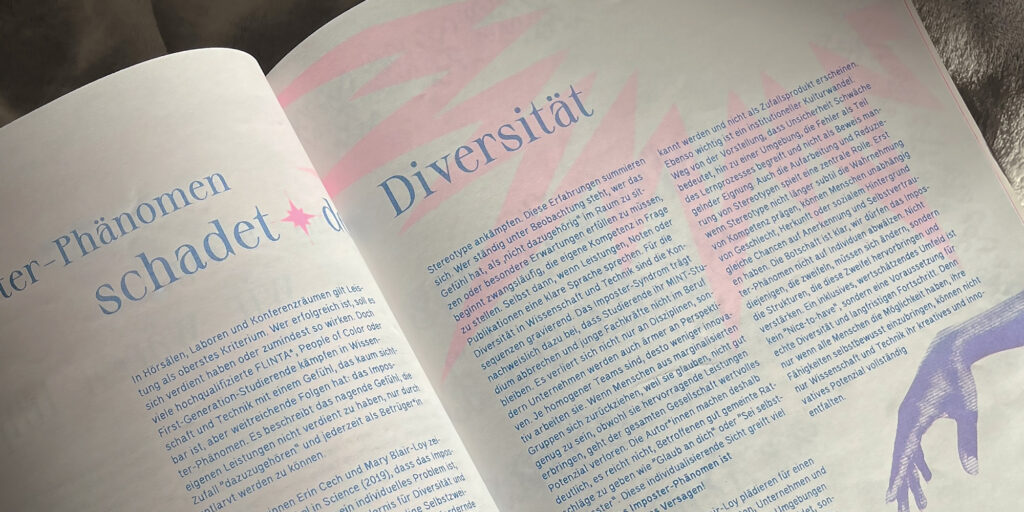 ter-Phänomen
schadet
Diversität
In Hörsälen, Laboren und Konferenzräumen gilt Leis-
tung als oberstes Kriterium. Wer erfolgreich ist, soll es
sich verdient haben oder zumindest so wirken. Doch
viele hochqualifizierte FLINTA*, People of Color oder
First-Generation-Studierende kämpfen in Wissen-
schaft und Technik mit einem Gefühl, das kaum sicht-
bar ist, aber weitreichende Folgen hat: das Impos-
ter-Phänomen. Es beschreibt das nagende Gefühl, die
eigenen Leistungen nicht verdient zu haben, nur durch
Zufall "dazuzugehören" und jederzeit als Betrüger*in
entlarvt werden zu können.
innen Erin Cech und Mary Blair-Loy zei-
in Science (2019), dass das Impos-
ein individuelles Problem ist,
Diversität und
Stereotype ankämpfen. Diese Erfahrungen summieren
sich. Wer ständig unter Beobachtung steht, wer das
Gefühl hat, als „nicht dazugehörig" im Raum zu sit-
zen oder besondere Erwartungen erfüllen zu müssen,
beginnt zwangsläufig, die eigene Kompetenz in Frage
zu stellen. Selbst dann, wenn Leistungen, Noten oder
Publikationen eine klare Sprache sprechen. Für die
Diversität in Wissenschaft und Technik sind die Kon-
sequenzen gravierend. Das Imposter-Syndrom trägt
nachweislich dazu bei, dass Studierende ihr MINT-Stu-
dium abbrechen und junge Fachkräfte nicht im Beruf
bleiben. Es verliert sich nicht nur an Disziplinen, son-
dern Unternehmen werden auch ärmer an Perspekti-
Je homogener Teams sind, desto weniger innova-
tiv arbeiten sie. Wenn Menschen aus marginalisierten
Gruppen sich zurückziehen, weil sie glauben, nicht gut
genug zu sein, obwohl sie hervorragende Leistungen
erbringen, geht der gesamten Gesellschaft wertvolles
Potenzial verloren. Die Autor*innen machen deshalb
deutlich, es reicht nicht, Betroffenen gut gemeinte Rat-
schläge zu geben wie "Glaub an dich" oder "Sei selbst-
Diese individualisierende Sicht greift viel
Imposter-Phänomen ist
Versagen!
Blair-Loy plädieren für einen
Unternehmen und
Umgebungen
kannt werden und nicht als Zufallsprodukt erscheinen.
Ebenso wichtig ist ein institutioneller Kulturwandel.
Weg von der Vorstellung, dass Unsicherheit Schwäche
bedeutet, hin zu einer Umgebung, die Fehler als Teil
des Lernprozesses begreift und nicht als Beweis man-
gelnder Eignung. Auch die Aufarbeitung und Reduzie-
rung von Stereotypen spielt eine zentrale Rolle. Erst
wenn Stereotype nicht länger subtil die Wahrnehmung
von Kompetenz prägen, können Menschen unabhängig
von Geschlecht, Herkunft oder sozialem Hintergrund
gleiche Chancen auf Anerkennung und Selbstvertrau-
en haben. Die Botschaft ist klar, wir dürfen das Impos-
ter-Phänomen nicht auf individuum abwälzen. Nicht
diejenigen, die zweifeln, müssen sich ändern, sondern
die Strukturen, die diese Zweifel hervorbringen und
verstärken. Ein inklusives, wertschätzendes Umfeld ist
"Nice-to-have", sondern eine Voraussetzung für
echte Diversität und langfristigen Fortschritt. Denn
nur wenn alle Menschen die Möglichkeit haben, ihre
Fähigkeiten selbstbewusst einzubringen, können nicht
nur Wissenschaft und Technik ihr kreatives und inno-
vatives Potenzial vollständig
entfalten.